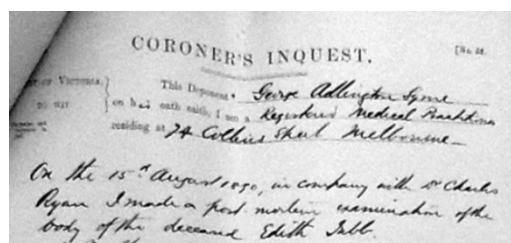 CORONER'S INQUEST.
[No. 24.
OF VICTORIA, } This Deponent, George Adlington Syme
TO WIT on his oath saith, I am a Registered Medical Practitioner
residing at 74 Collins Street Melbourne—
On the 15th August 1890, in company with Dr Charles
Ryan I made a post mortem examination of the
body of the deceased Edith